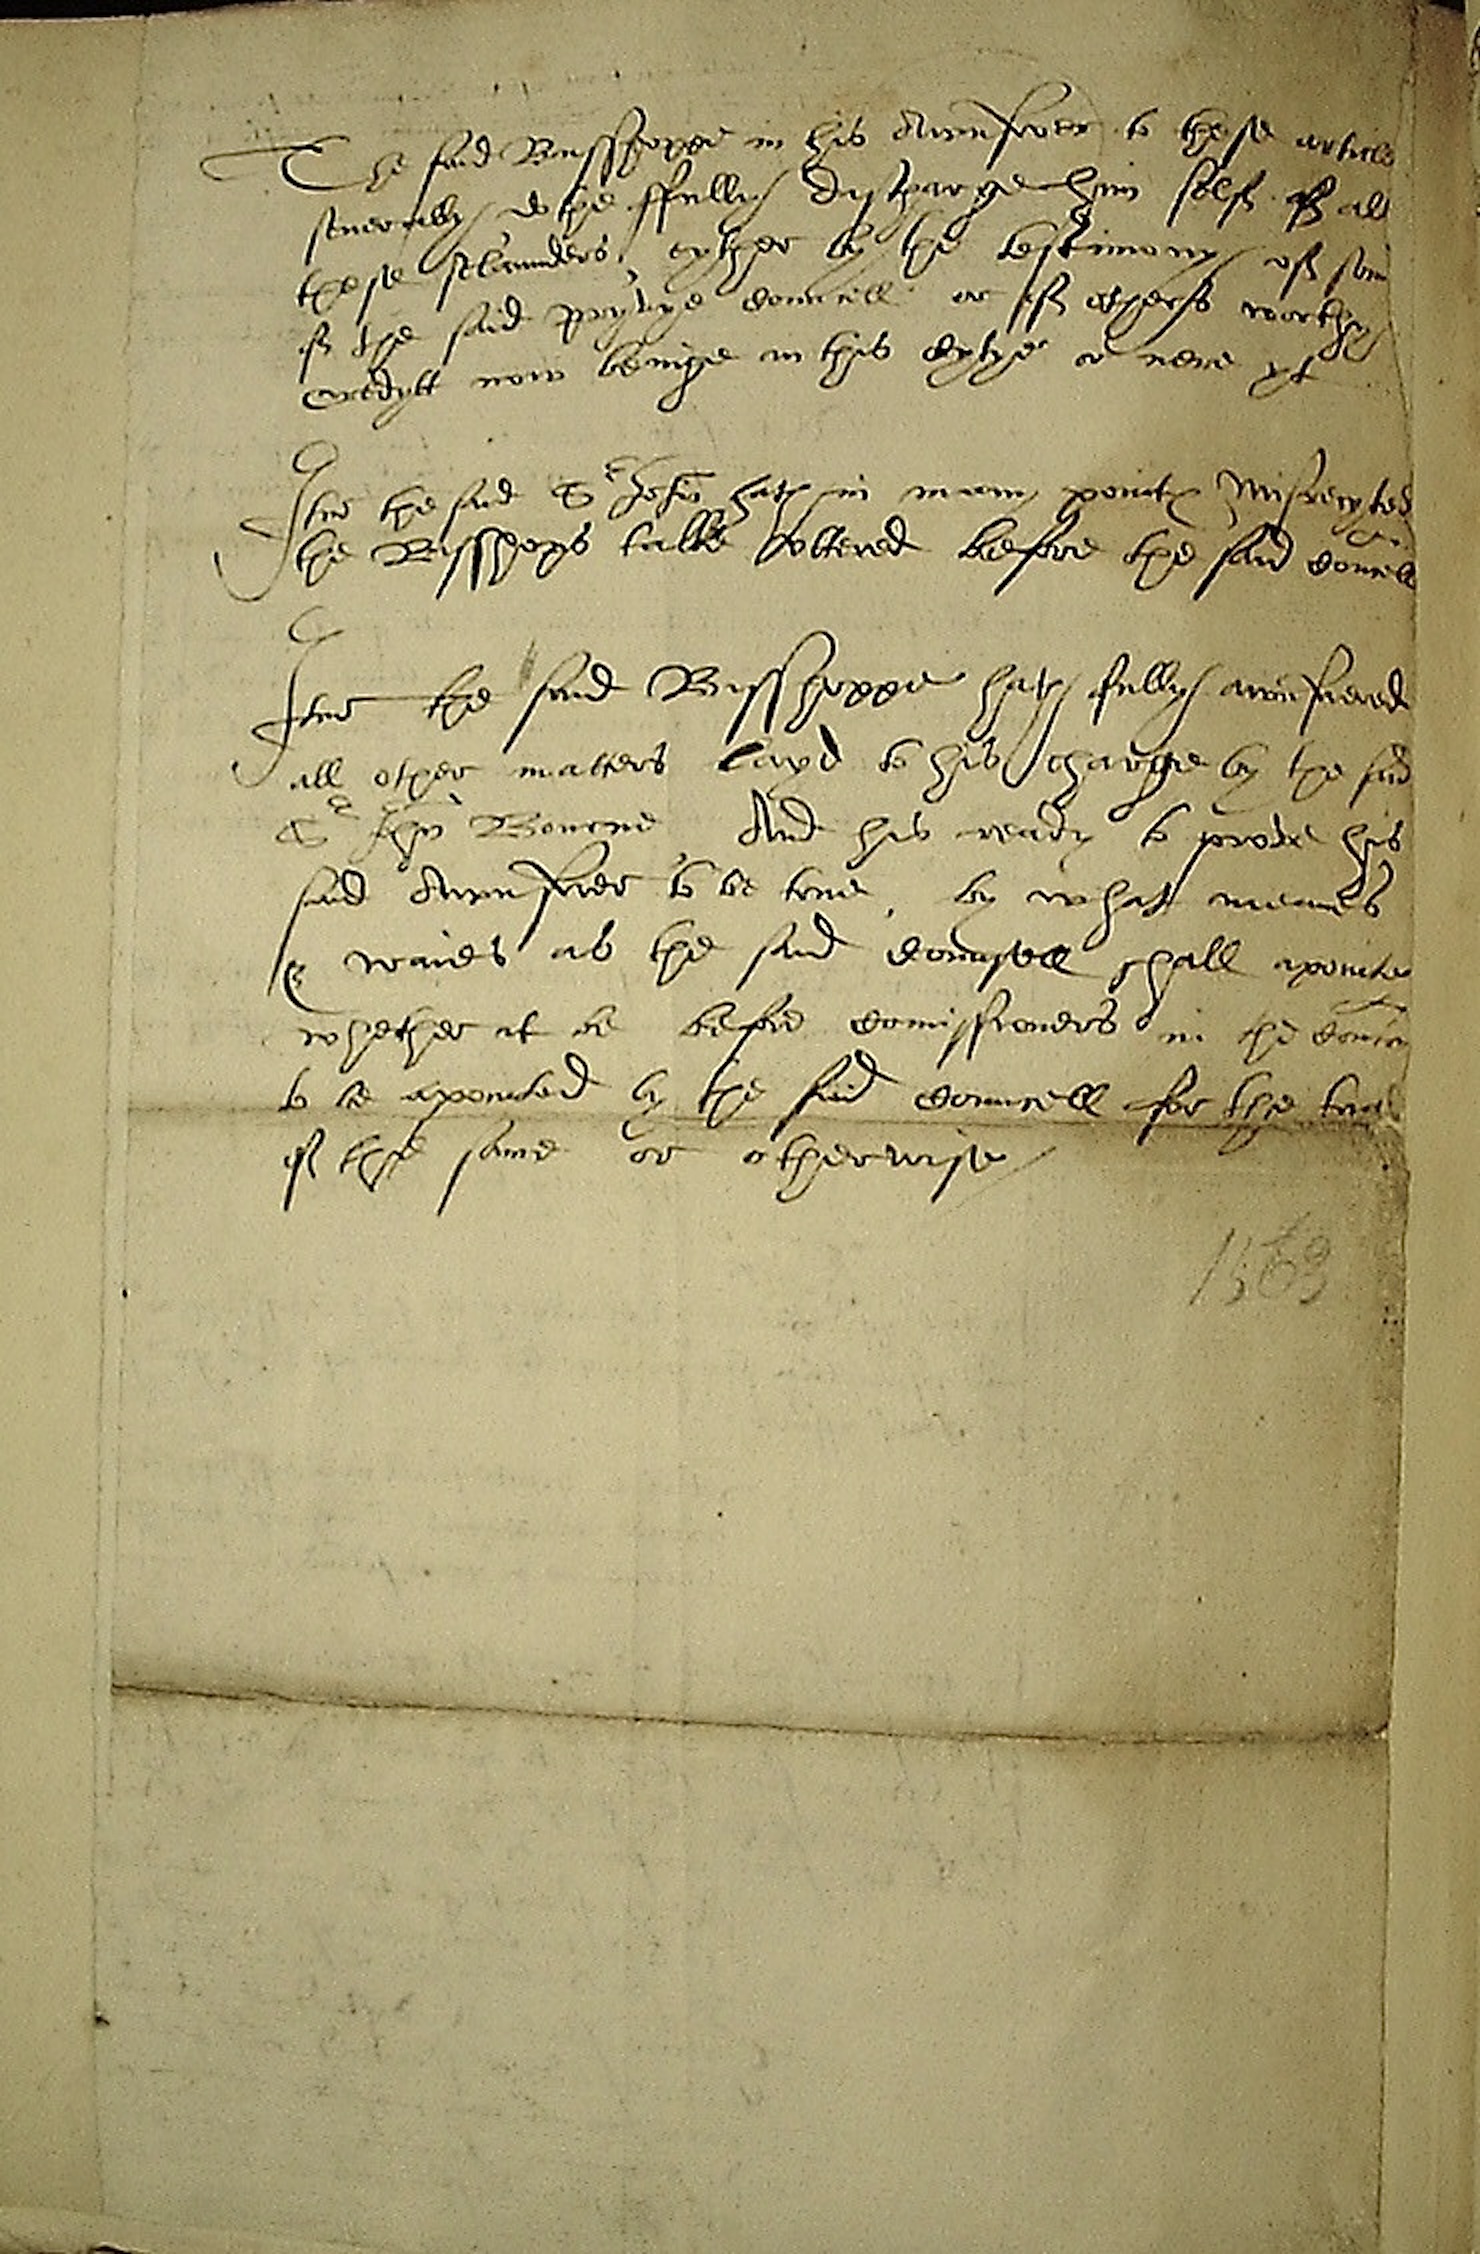 The said Bysshoppe in his Aunswer to these articles
severally dothe ffully dyscharge him self of all
these sclaunders, eyther by the testimony of som
of the said pryvye Councell or of others worthy
Credytt now beinge in this Cytye or nere yt
Itm the said Sr John hath in many points Misrecyted
the Bisshops talke vttered before the said Councell
Itm the said Bysshoppe hath fully aunswered
all other matters layd to his charge by the said
Sr Jhon Bourne And his ready to prove his
said Aunswer to be true, by what meanes
& waies as the said Counsell shall apointe
whether it be before Comissioners in the Countrey
to be apointed by the said Councell for the triall
of the same or otherwise
1563